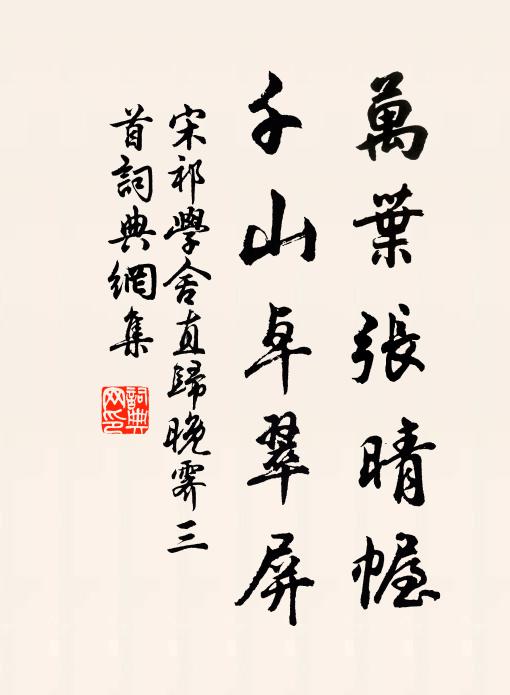 萬葉張晴幄
千山卓翠屏
宋祁學舍直歸晚霽三
首詞典網集
詞典网印